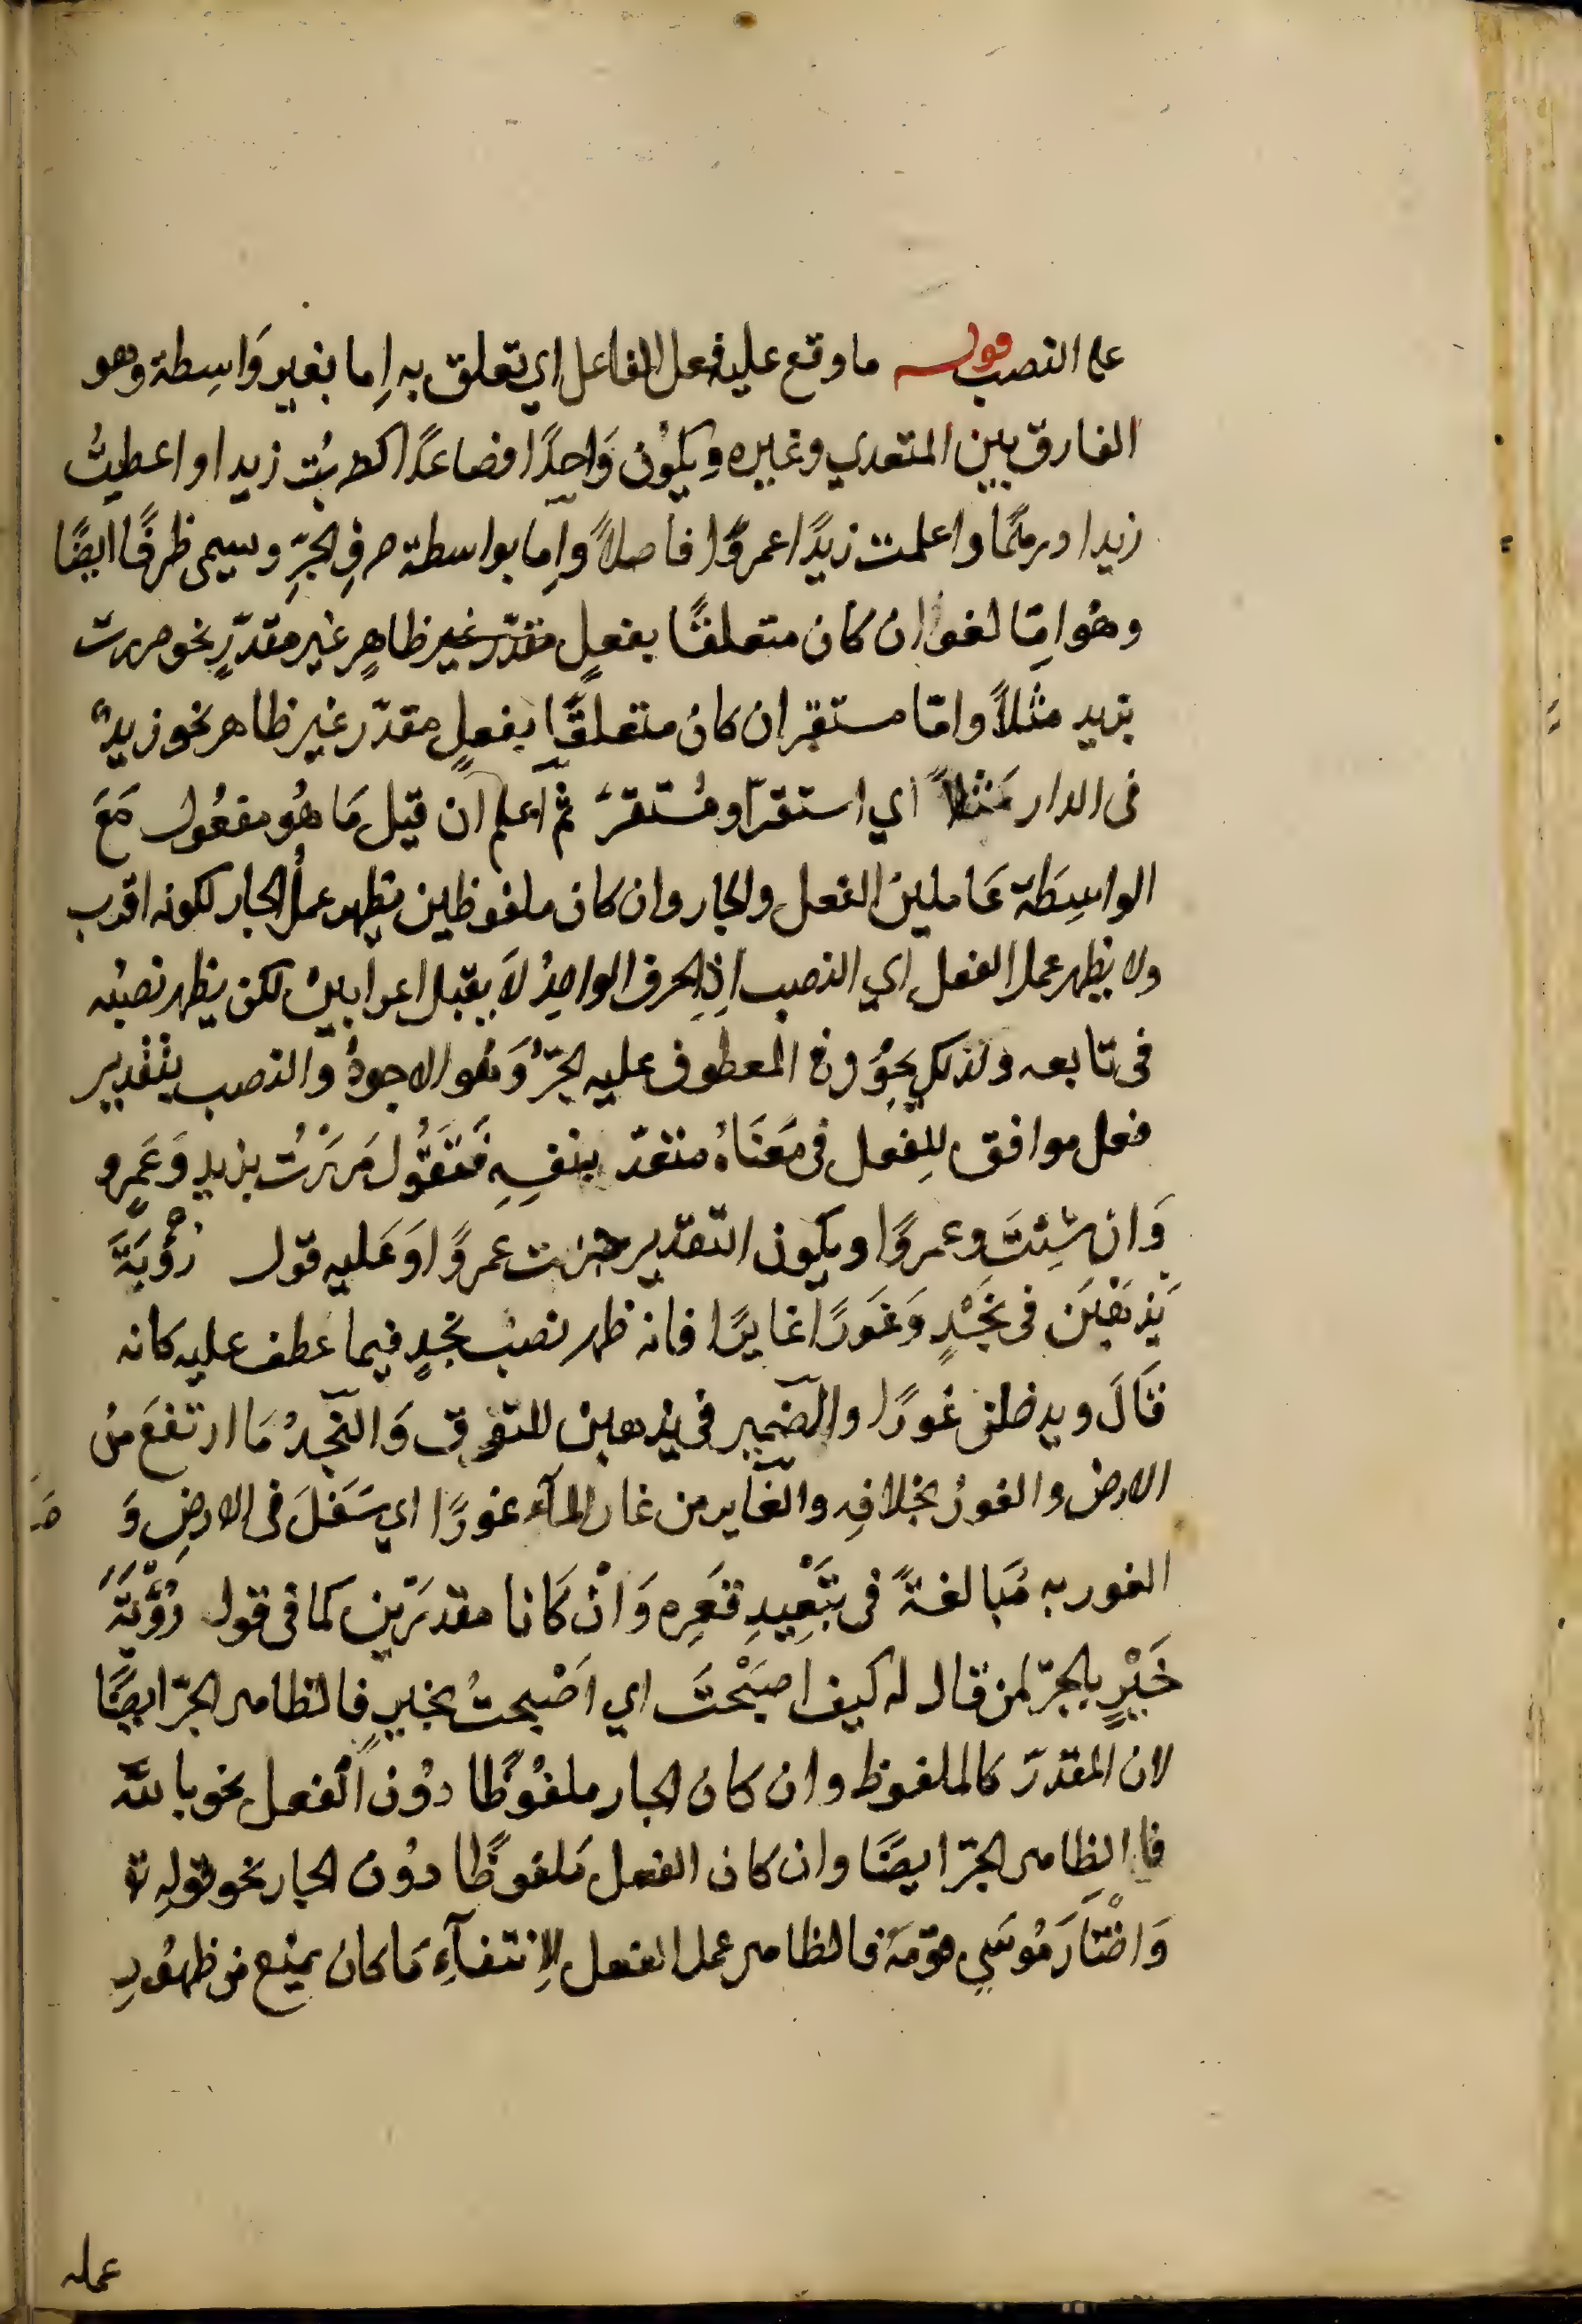 علم النصب قوله ما وقع عليه فعل الفاعل اي تعلق به اِما بغير وَاسِطة وهو
الفارق بين المتعدي وغيره ويكوُن وَاحِدًا فصاعدًا كضربْتُ زيدا او اعطيتُ
زيدا درهمًا واعلمت زيدًا عمروًا فاضلاً واِما بواسطة حرفِ الجرِّ ويسمى ظرفًا ايضًا
وهُو اِمّا لغوا ان كان متعلقًا بفعلٍ مقدّر غير ظاهرٍ غير مقدّرٍ نحو مررت
بزيد مثلاً وامّا مستقر ان كان متعلقًا بفعلٍ مقدّر غير ظاهر نحو زيدٌ
فى الدار مَثلاً اي استقرّ او مُستقرٌ ثم اعلم ان قيل مَا هُو مفعُول مَعَ
الواسِطَة عَاملين الفعل والجار وان كان ملفوظين يظهر عملُ الجار لكونه اقرب
ولا يظهر عمل الفعل اي النصب اِذِ الحرف الواحِدُ لاَ يقبل اعرابين لكن يظهر نصبُه
فى تابعه ولذلك يجُوز فى المعطوف عليه الجرُّ وَهُو الاجودُ والنصب بتقدير
فعل موافق للِفعل فى مَعنَاهُ متعدّ بنفسِهِ فَتَقُول مَرَرْتُ بزيدٍ وَعَمرٍو
وَان شِئتَ وعمروًا ويكون التقدير جزت عمروًا وَعَليه قول رُؤْبَةَ
يَذهَبْنَ فى نَجْدٍ وَغَورًا غايرًا فانه ظهر نصبُ نجدٍ فيما عطف عليه كانه
قَالَ ويدخلن غورًا والضمير فى يذهبن للنوق وَالنّجدُ مَا ارتفعَ مِن
الارض والغورُ بخلافِه والغَاير من غار المآء غورًا اي سَفلَ فى الارضِ وَ
الغور به مُبَالغةً فى تَبْعِيدِ قعرِه وَانْ كَانا مقدرَين كما فى قول رُؤْبَةَ
خَيْرٍ بالجرّ لمن قال له كيف اصبَحْتَ اي اَصْبحتُ بخيرٍ فالظاهر الجرّ ايضًا
لان المقدّر كالملفوظ وان كان الجار ملفُوظًا دوُن الفعل نحو بالله
فا الظاهر الجرّ ايضًا وان كان الفعل مَلفوظًا دوُن الجار نحو قولِه تع
وَاخْتَارَ مُوسَي قوْمَهُ فالظاهر عمل الفعل لاِنتفآءِ مَا كان يمنع من ظهُورِ
عمله